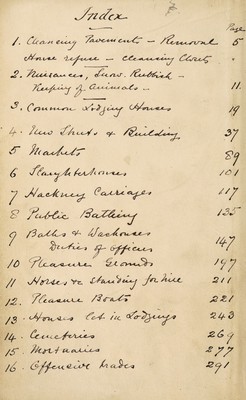 Index
Page
1. Cleansing Pavements – Removal 5
House refuse – Cleansing Closets "
2. Nuisances, Snow. Rubbish –
Keeping of Animals – 11
3. Common Lodging Houses 19
4. New Streets & Building 37
5 Markets 89
6 Slaughterhouses 101
7 Hackney Carriages 117
8 Public Bathing 135
9 Baths & Washouses
Duties of Officers 147
10 Pleasure Grounds 197
11 Horses &c standing for hire 211
12. Pleasure Boats 221
13. Houses let in Lodgings 243
14. Cemeteries 269
15. Mortuaries 277
16. Offensive trades 291